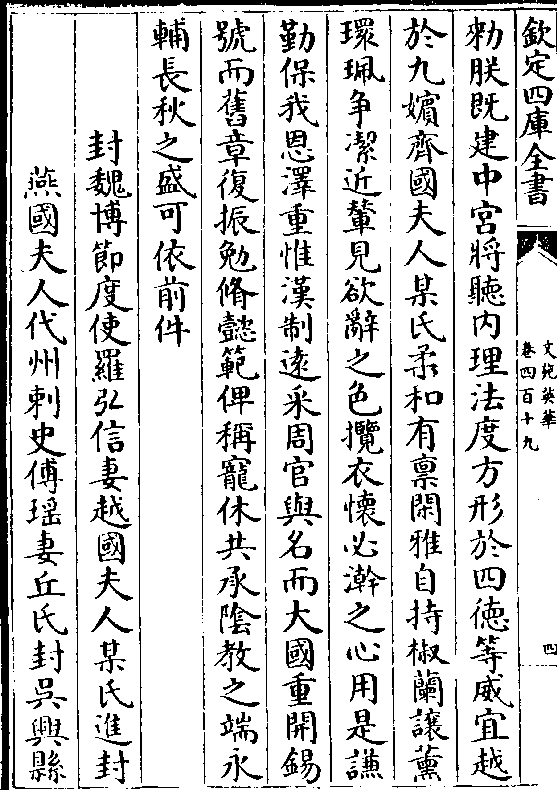 欽定四庫全書
文苑英華
卷四百十九
四
勑朕既建中宮將聽内理法度方形於四徳等威宜越
於九嬪齊國夫人某氏柔和有禀閑雅自持椒蘭讓薫
環珮争潔近輦見欲辭之色攬衣懷必澣之心用是謙
勤保我恩澤重惟漢制遠采周官與名而大國重開錫
號而舊章復振勉脩懿範俾稱寵休共承陰教之端永
輔長秋之盛可依前件
封魏博節度使羅弘信妻越國夫人某氏進封
燕國夫人代州刺史傅瑶妻丘氏封吳興縣